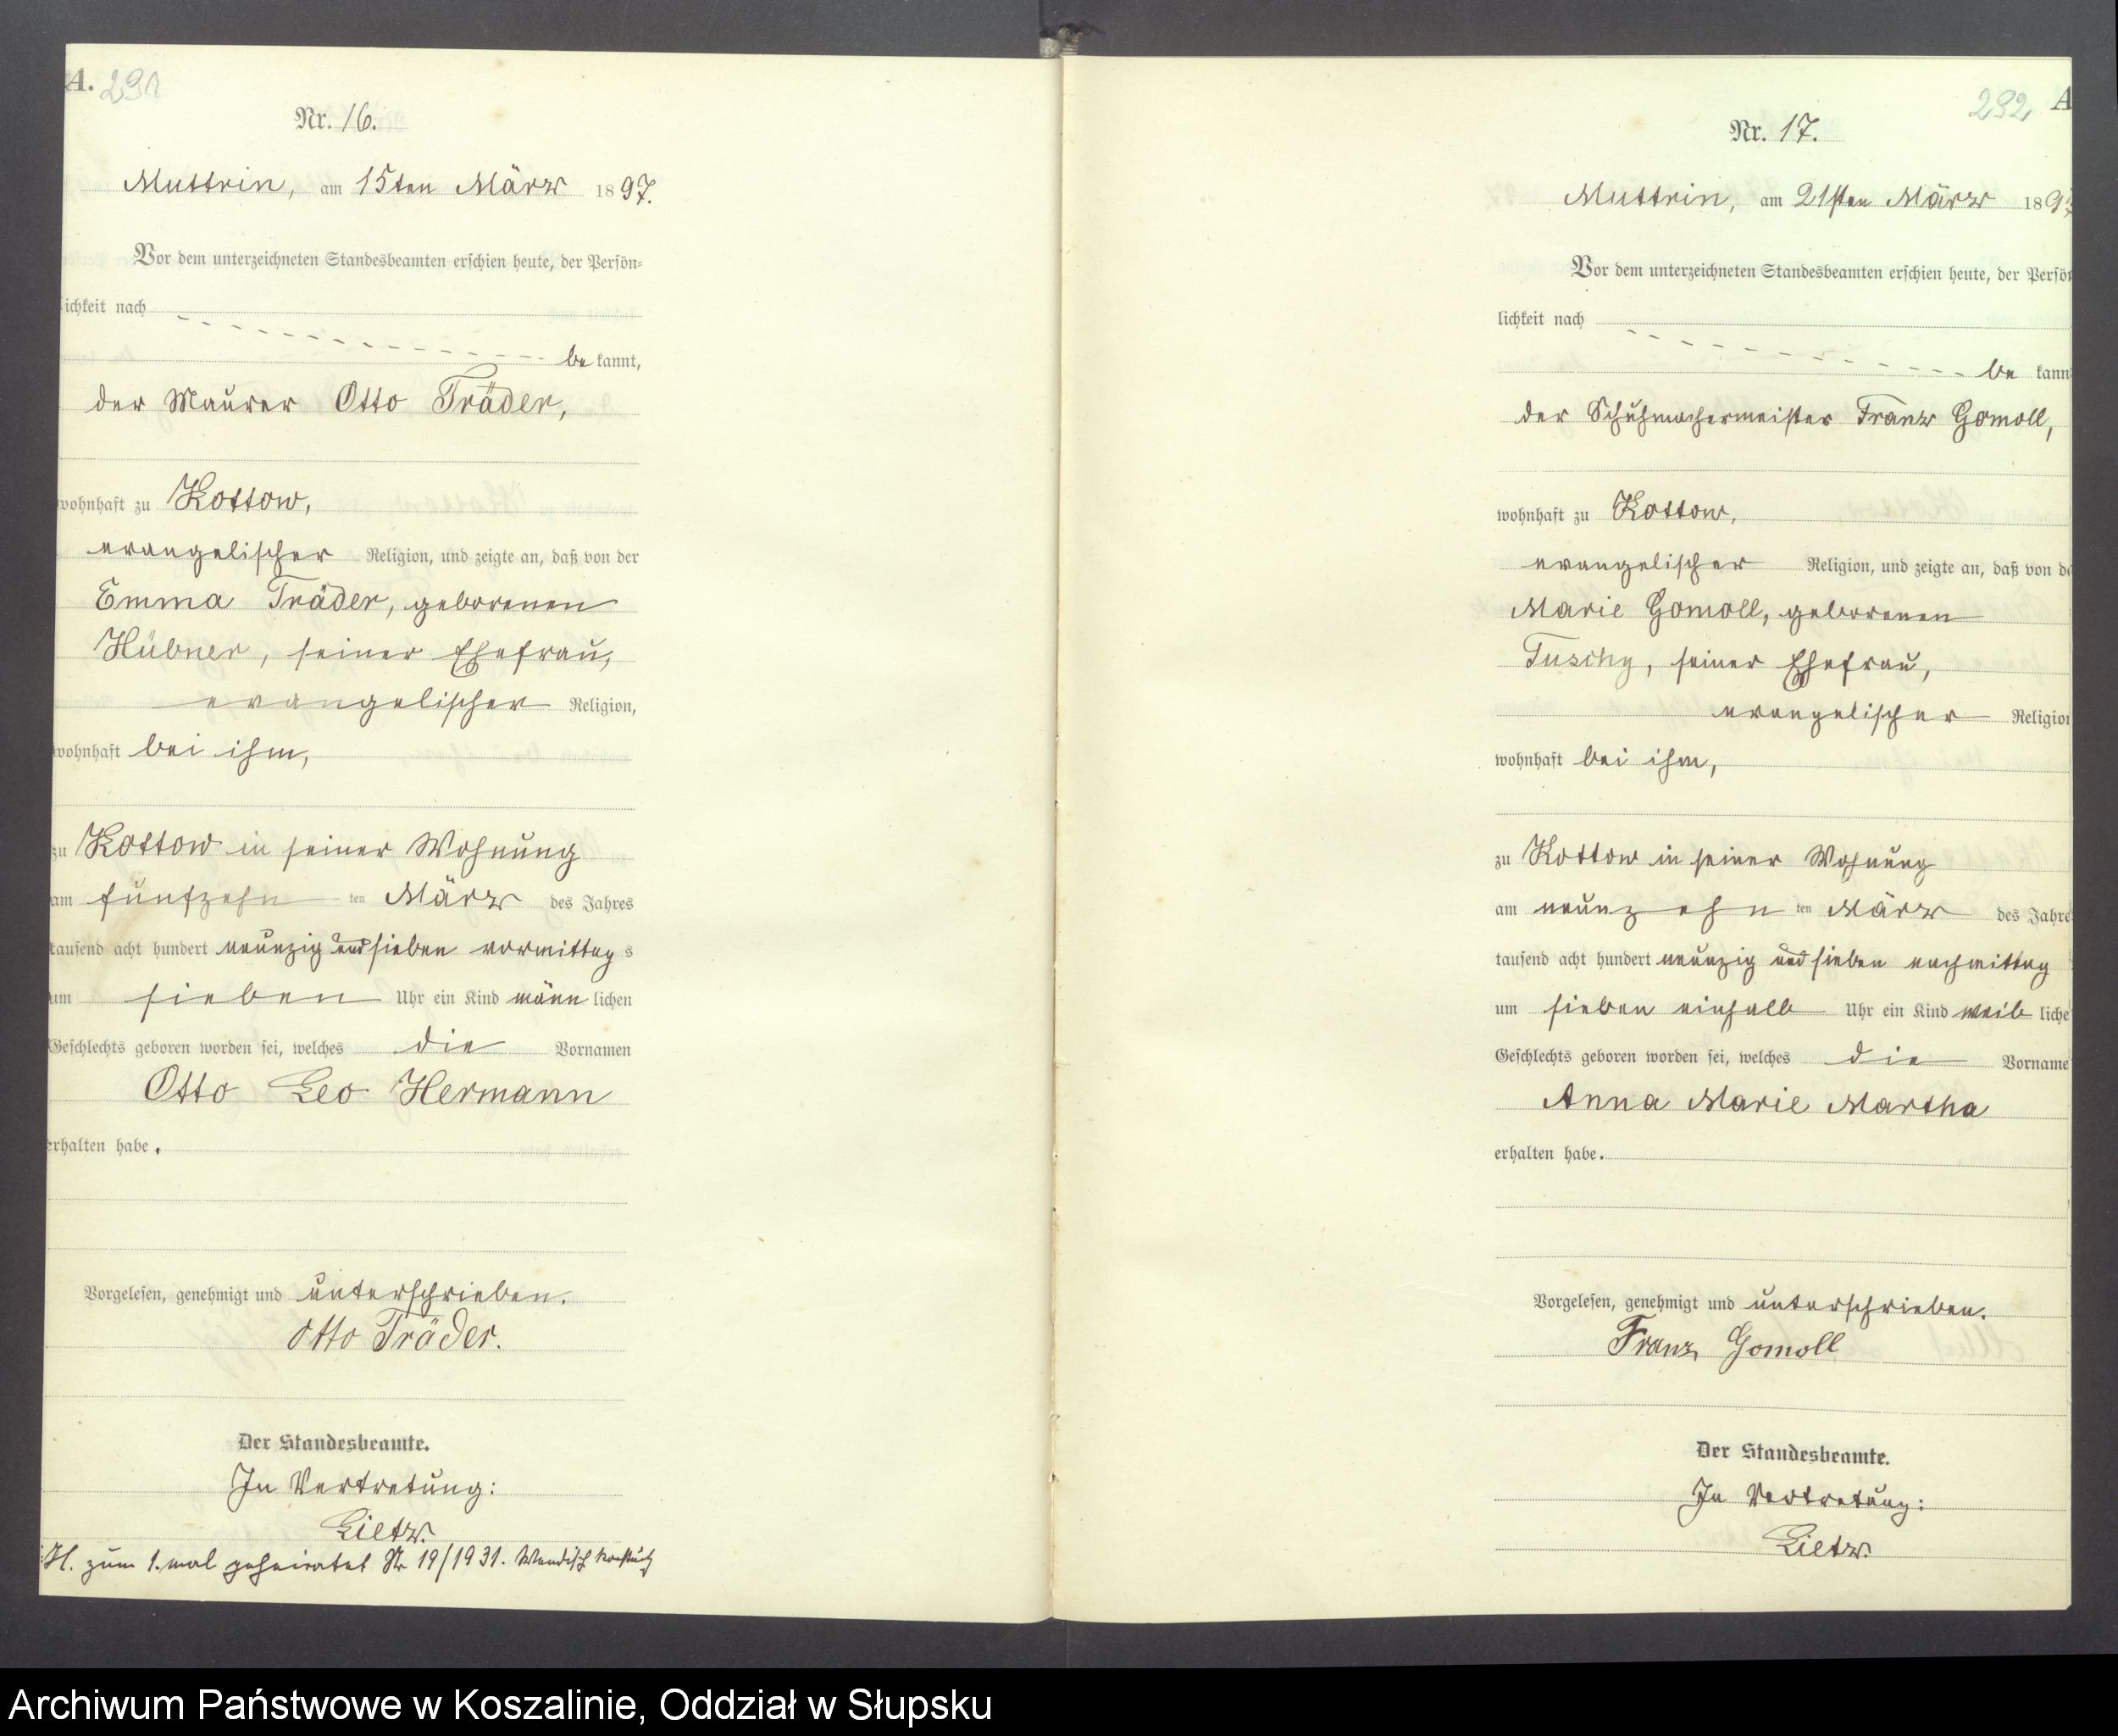 A. 291
Nr. 16.
Muttrin, am 15ten März 1897.
Vor dem unterzeichneten Standesbeamten erschien heute, der Persön-
lichkeit nach
be kannt,
der Maurer Otto Träder,
wohnhaft zu Kottow,
evangelischer Religion, und zeigte an, daß von der
Emma Träder, geborenen
Hübner, seiner Ehefrau,
evangelischer Religion,
wohnhaft bei ihm,
zu Kottow in seiner Wohnung
am fünfzehn ten März des Jahres
tausend acht hundert neunzig und sieben vormittag s
um sieben Uhr ein Kind männ lichen
Geschlechts geboren worden sei, welches die Vornamen
Otto Leo Hermann
erhalten habe.
Vorgelesen, genehmigt und unterschrieben.
Otto Träder.
Der Standesbeamte.
In Vertretung:
Lietz.
H. zum 1. mal geheiratet Nr 19/1931. Wendisch
292 A
Nr. 17.
Muttrin, am 21sten März 1897
Vor dem unterzeichneten Standesbeamten erschien heute, der Persön
lichkeit nach
be kann
der Schuhmachermeister Franz Gomoll,
wohnhaft zu Kottow,
evangelischer Religion, und zeigte an, daß von de
Marie Gomoll, geborenen
Tuschy, seiner Ehefrau,
evangelischer Religion
wohnhaft bei ihm,
zu Kottow in seiner Wohnung
am neunzehn ten März des Jahre
tausend acht hundert neunzig und sieben nachmittag
um sieben einhalb Uhr ein Kind weib liche
Geschlechts geboren worden sei, welches die Vorname
Anna Marie Martha
erhalten habe.
Vorgelesen, genehmigt und unterschrieben.
Franz Gomoll
Der Standesbeamte.
In Vertretung:
Lietz.
Archiwum Państwowe w Koszalinie, Oddział w Słupsku